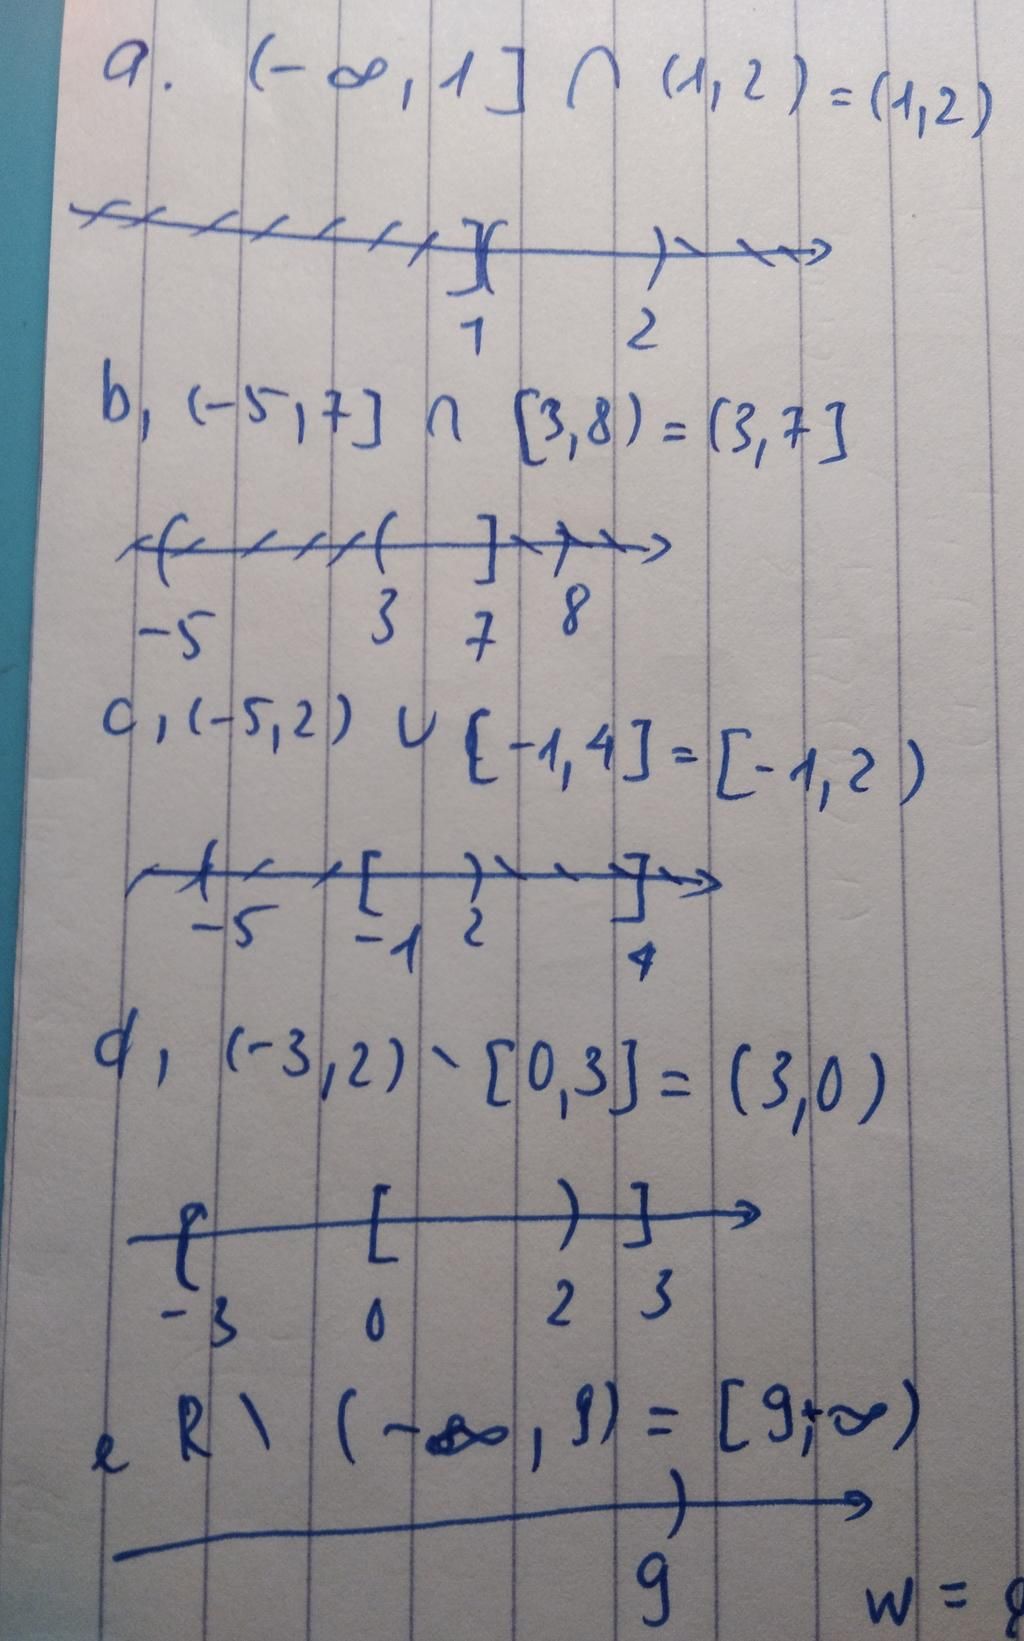 a. (-∞, 1] ∩ (1,2) = (1,2)
1 2
b, (-5,7] ∩ [3,8) = (3,7]
-5 3 7 8
c, (-5,2) ∪ [-1,4] = [-1,2)
-5 -1 2 4
d, (-3,2) \ [0,3] = (3,0)
-3 0 2 3
e R \ (-∞, 9) = [9;∞)
9
w =